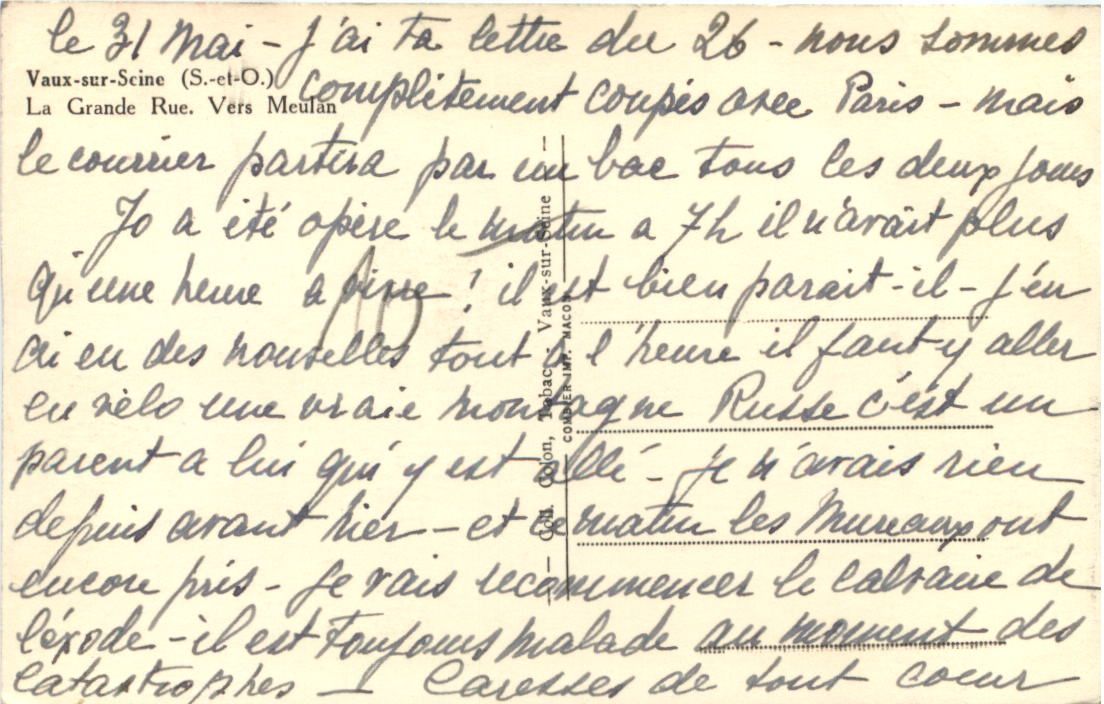 le 31 Mai - J'ai ta lettre du 26 - nous sommes
Vaux-sur-Seine (S.-et-O.)
La Grande Rue. Vers Meulan
complètement coupés avec Paris - mais
le courrier partira par un bac tous les deux jours
Jo a été opéré le matin a 7h il n'avait plus
qu'une heure a vivre ! il est bien parait-il - J'en
ai eu des nouvelles tout à l'heure il faut y aller
en vélo une vraie montagne Russe c'est un
parent a lui qui y est allé - je n'avais rien
depuis avant hier - et ce matin les Mureaux ont
encore pris - Je vais recommencer le calvaire de
l'éxode - il est toujours malade au moment des
catastrophes — Caresses de tout coeur
Coll. Colon, Tabac, Vaux-sur-Seine
COMBIER IMP. MACON